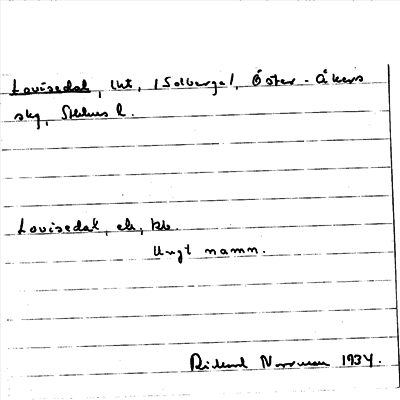 Lovisedal, lht, (Solberga), Öster-Åkers
skg, Sthlms l.
Lovisedal, ek, kb.
Ungt namn.
Rickard Norrman 1934.